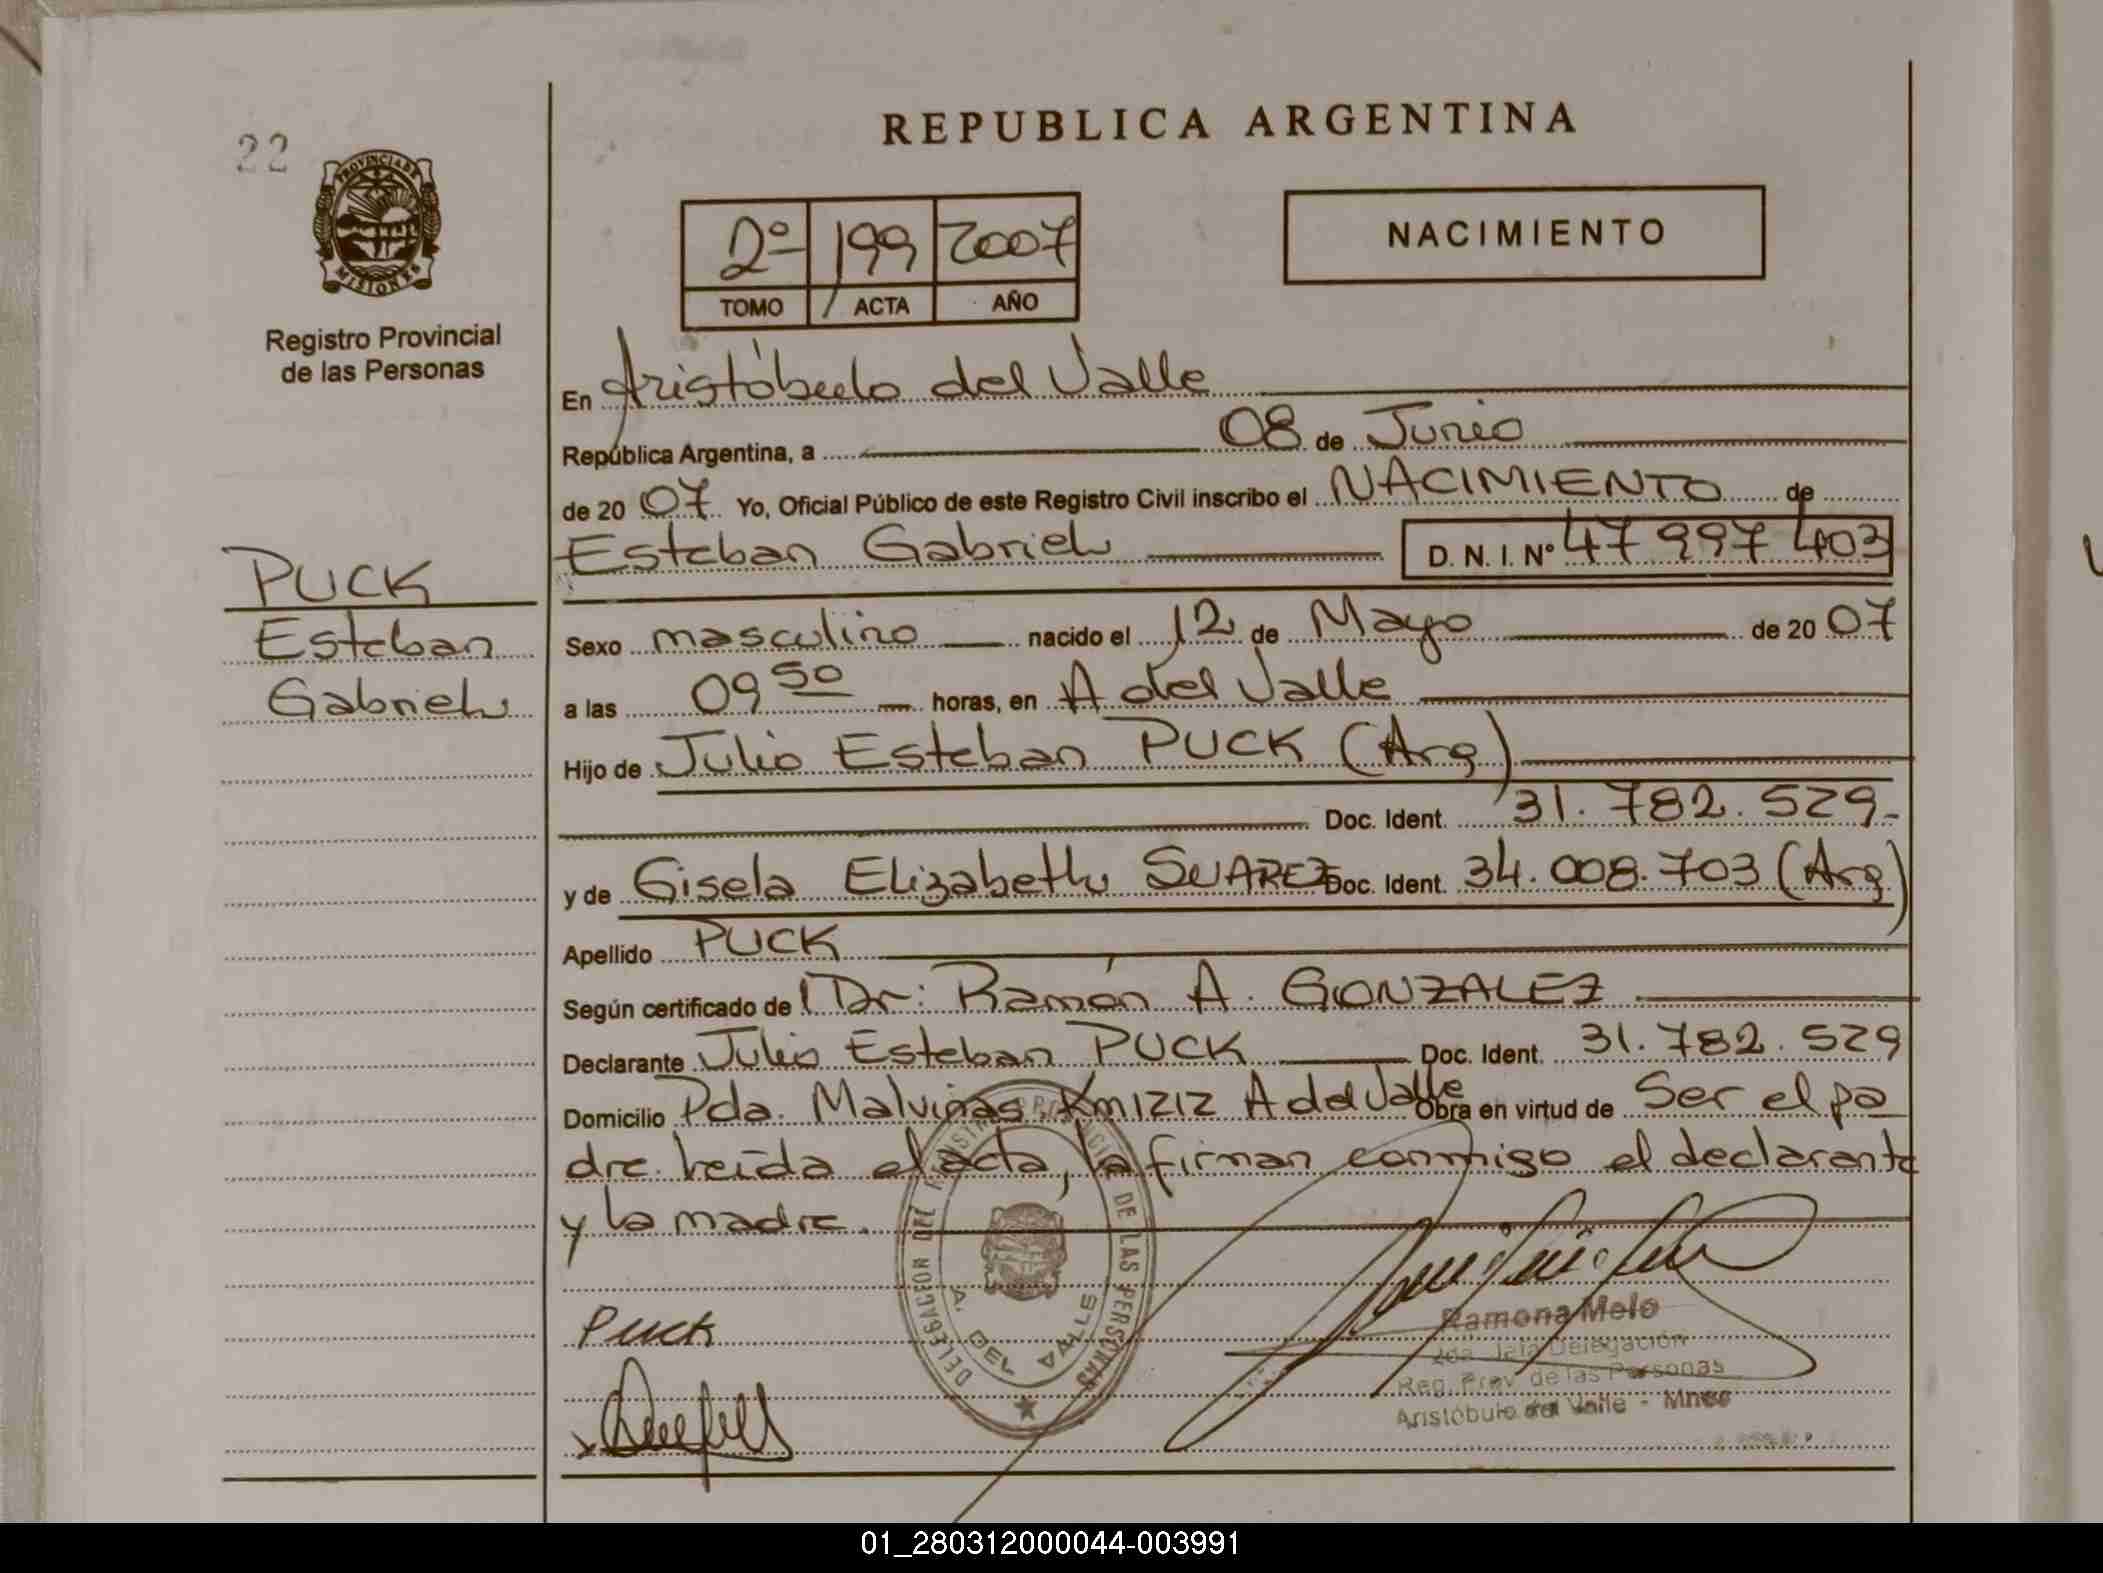 22
PROVINCIA DE
MISIONES
Registro Provincial
de las Personas
PUCK
Esteban
Gabriel
REPUBLICA ARGENTINA
2º 199 2007
TOMO ACTA AÑO
NACIMIENTO
En Aristóbulo del Valle
República Argentina, a 08 de Junio
de 20 07 Yo, Oficial Público de este Registro Civil inscribo el NACIMIENTO de
Esteban Gabriel D. N. I. Nº 47 997 403
Sexo masculino nacido el 12 de Mayo de 20 07
a las 09 50 horas, en A del Valle
Hijo de Julio Esteban PUCK (Arg)
Doc. Ident. 31.782.529-
y de Gisela Elizabeth SUAREZ Doc. Ident. 34.008.703 (Arg)
Apellido PUCK
Según certificado de Dr: Ramón A. GONZALEZ
Declarante Julio Esteban PUCK Doc. Ident. 31.782.529
Domicilio Pda. Malvinas Km1212 A del Valle Obra en virtud de Ser el pa
dre. Leída el acta, la firman conmigo el declarante
y la madre.
DELEGACION DEL REGISTRO PROVINCIAL DE LAS PERSONAS
A. DEL VALLE
Puck
Ramona Melo
2da. Jefa Delegación
Reg. Prov. de las Personas
Aristóbulo del Valle - Mnes
01_280312000044-003991